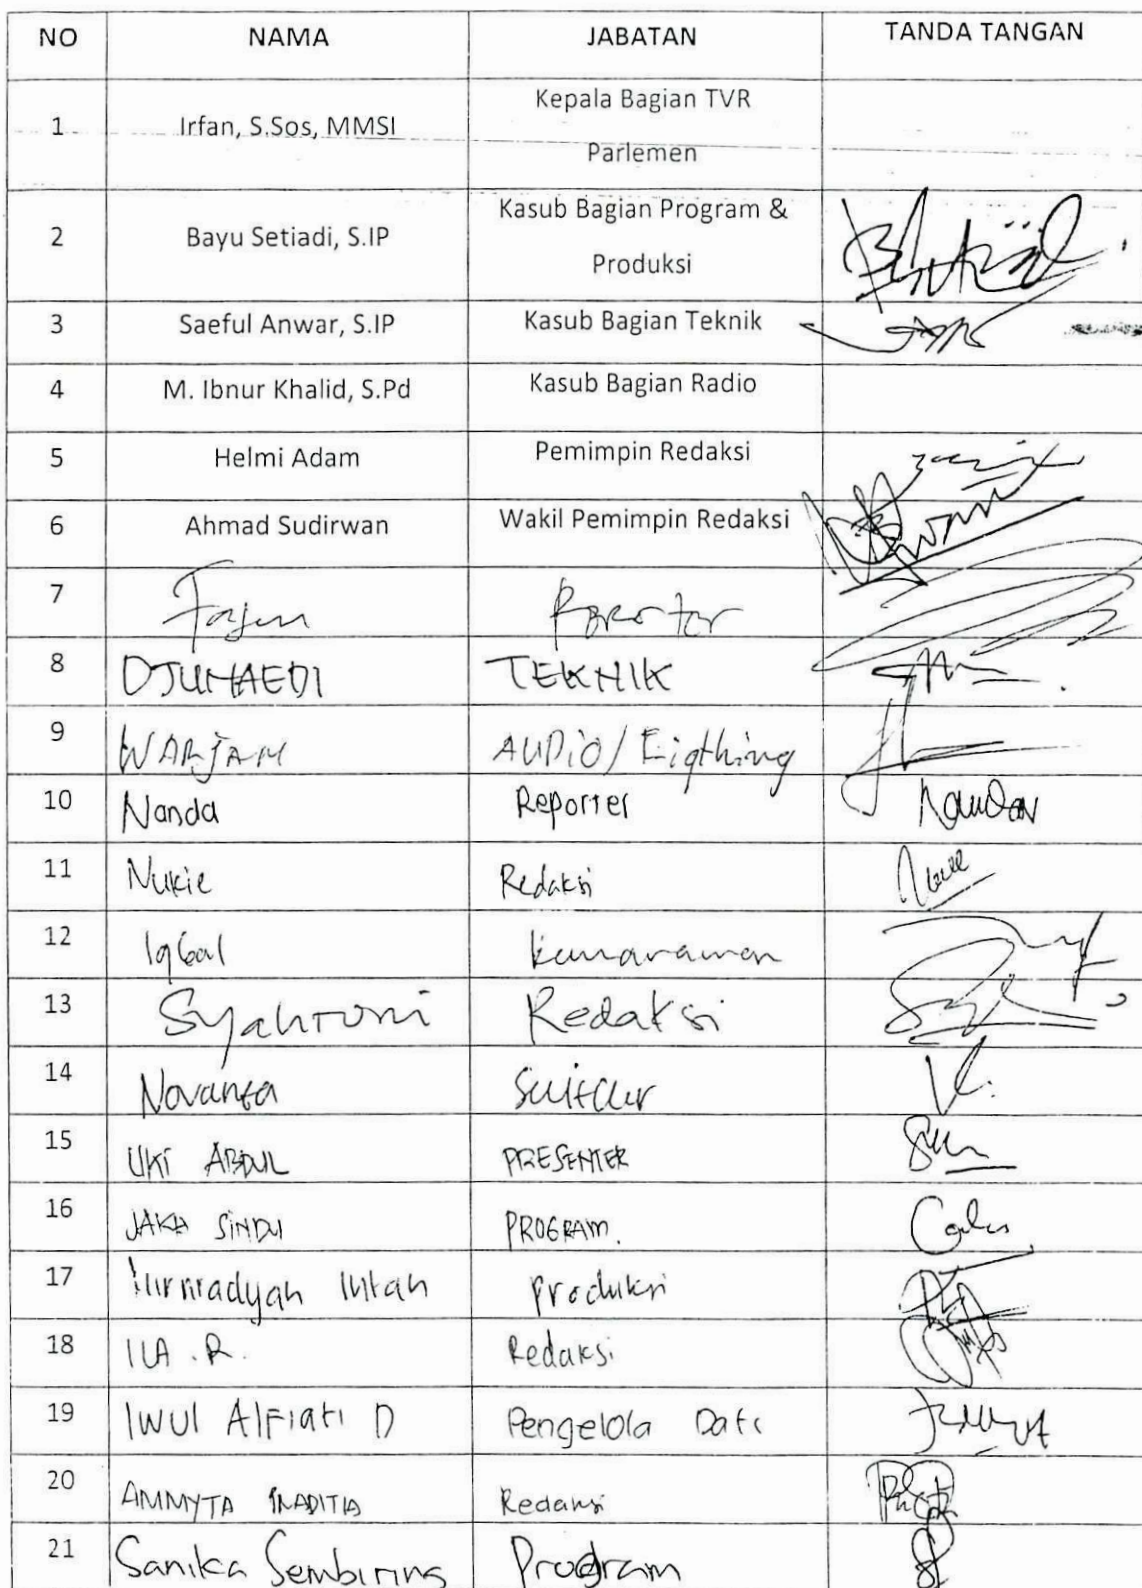 NO NAMA JABATAN TANDA TANGAN
1 Irfan, S.Sos, MMSI Kepala Bagian TVR
Parlemen
2 Bayu Setiadi, S.IP Kasub Bagian Program &
Produksi
3 Saeful Anwar, S.IP Kasub Bagian Teknik
4 M. Ibnur Khalid, S.Pd Kasub Bagian Radio
5 Helmi Adam Pemimpin Redaksi
6 Ahmad Sudirwan Wakil Pemimpin Redaksi
7 Reportor
8 DJUHAEDI TEKNIK
9 WARJAM AUDIO/Ligthing
10 Nanda Reporter
11 Nukie Redaksi
12 Iqbal kamaramen
13 Syahroni Redaksi
14 Novanta
15 UKI ABDUL PRESENTER
16 JAKA SINDU PROGRAM.
17 Intan Produksi
18 Redaksi
19 IWUL Alfiati D Pengelola Data
20 AMMYTA PRADITIA Redaksi
21 Sanika Sembiring Program